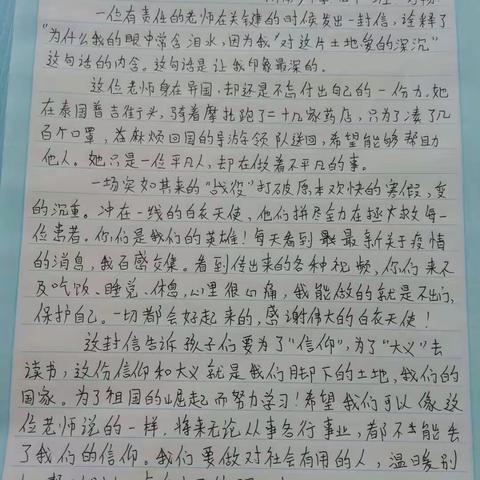 一位有责任的老师在关键的时候发出一封信，诠释了
“为什么我的眼中常含泪水，因为我对这片土地爱的深沉”
这句话的内含。这句话是让我印象最深的。
这位老师身在异国，却还是不忘付出自己的一份力。她
在泰国普吉街头，骑着摩托跑了二十几家药店，只为了凑了几
百个口罩，在麻烦回国的导游领队送回，希望能够帮助
他人。她只是一位平凡人，却在做着不平凡的事。
一场突如其来的“战役”打破原本欢快的寒假，变
的沉重。冲在一线的白衣天使，他们拼尽全力在拯救每一
位患者。你们是我们的英雄！每天看到最新关于疫情
的消息，我百感交集。看到传出来的各种视频，你们来不
及吃饭、睡觉、休息，心里很心痛，我能做的就是不出门，
保护自己。一切都会好起来的，感谢伟大的白衣天使！
这封信告诉孩子们要为了“信仰”，为了“大义”去
读书，这份信仰和大义就是我们脚下的土地，我们的
国家。为了祖国的崛起而努力学习！希望我们可以像这
位老师说的一样，将来无论从事各行事业，都不能丢
了我们的信仰。我们要做对社会有用的人，温暖别